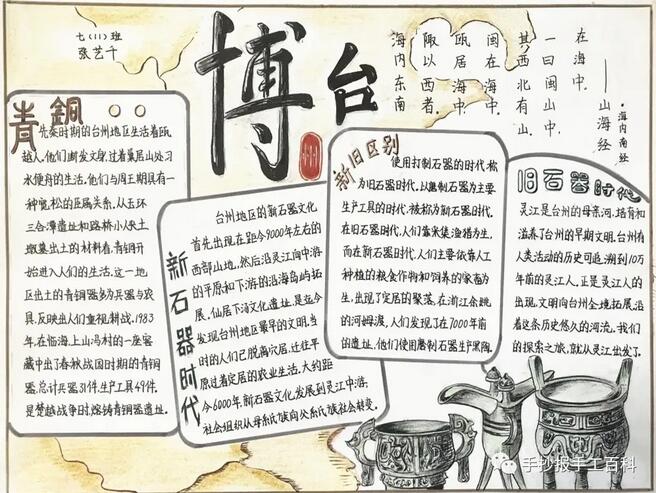 七(11)班
张艺千
博
台
州
海内东南
陬以西者.
瓯居海中.
闽在海中.
其西北有山.
一曰闽山中.
在海中.
——山海经
·海内南经
青铜
先秦时期的台州地区生活着瓯
越人.他们断发文身.过着巢居山处习
水便舟的生活.他们与周王朝具有一
种宽松的臣属关系.从玉环
三合潭遗址和路桥小人尖土
墩墓出土的材料看.青铜开
始进入人们的生活.这一地
区出土的青铜器多为兵器与农
具.反映出人们重视耕战.1983
年.在临海.上山冯村的一座窖
藏中出了春秋战国时期的青铜
器.总计兵器31件.生产工具49件.
是楚越战争时.熔铸青铜器遗址.
新石器时代
台州地区的新石器文化
首先出现在距今9000年左右的
西部山地.然后沿灵江向中游
的平原和下游的沿海岛屿拓
展.仙居下汤文化遗址.是迄今
发现台州地区最早的文明.当
时的人们已脱离穴居.迁往平
原过着定居的农业生活.大约距
今6000年.新石器文化发展到灵江中游.
社会组织从母系氏族向父系氏族社会转变.
新旧区别
使用打制石器的时代.称
为旧石器时代.以磨制石器为主要
生产工具的时代.被称为新石器时代.
在旧石器时代.人们靠采集渔猎为生.
而在新石器时代.人们主要依靠人工
种植的粮食作物和饲养的家畜为
生.出现了定居的聚落.在浙江余姚
的河姆渡.人们发现了在7000年前
的遗址.他们使用磨制石器生产黑陶.
旧石器时代
灵江是台州的母亲河.培育和
滋养了台州的早期文明.台州有
人类活动的历史可追溯到10万
年前的灵江人.正是灵江人的
出现.文明向台州全境拓展.沿
着这条历史悠久的河流.我们
的探索之旅.就从灵江出发了.
手抄报手工百科